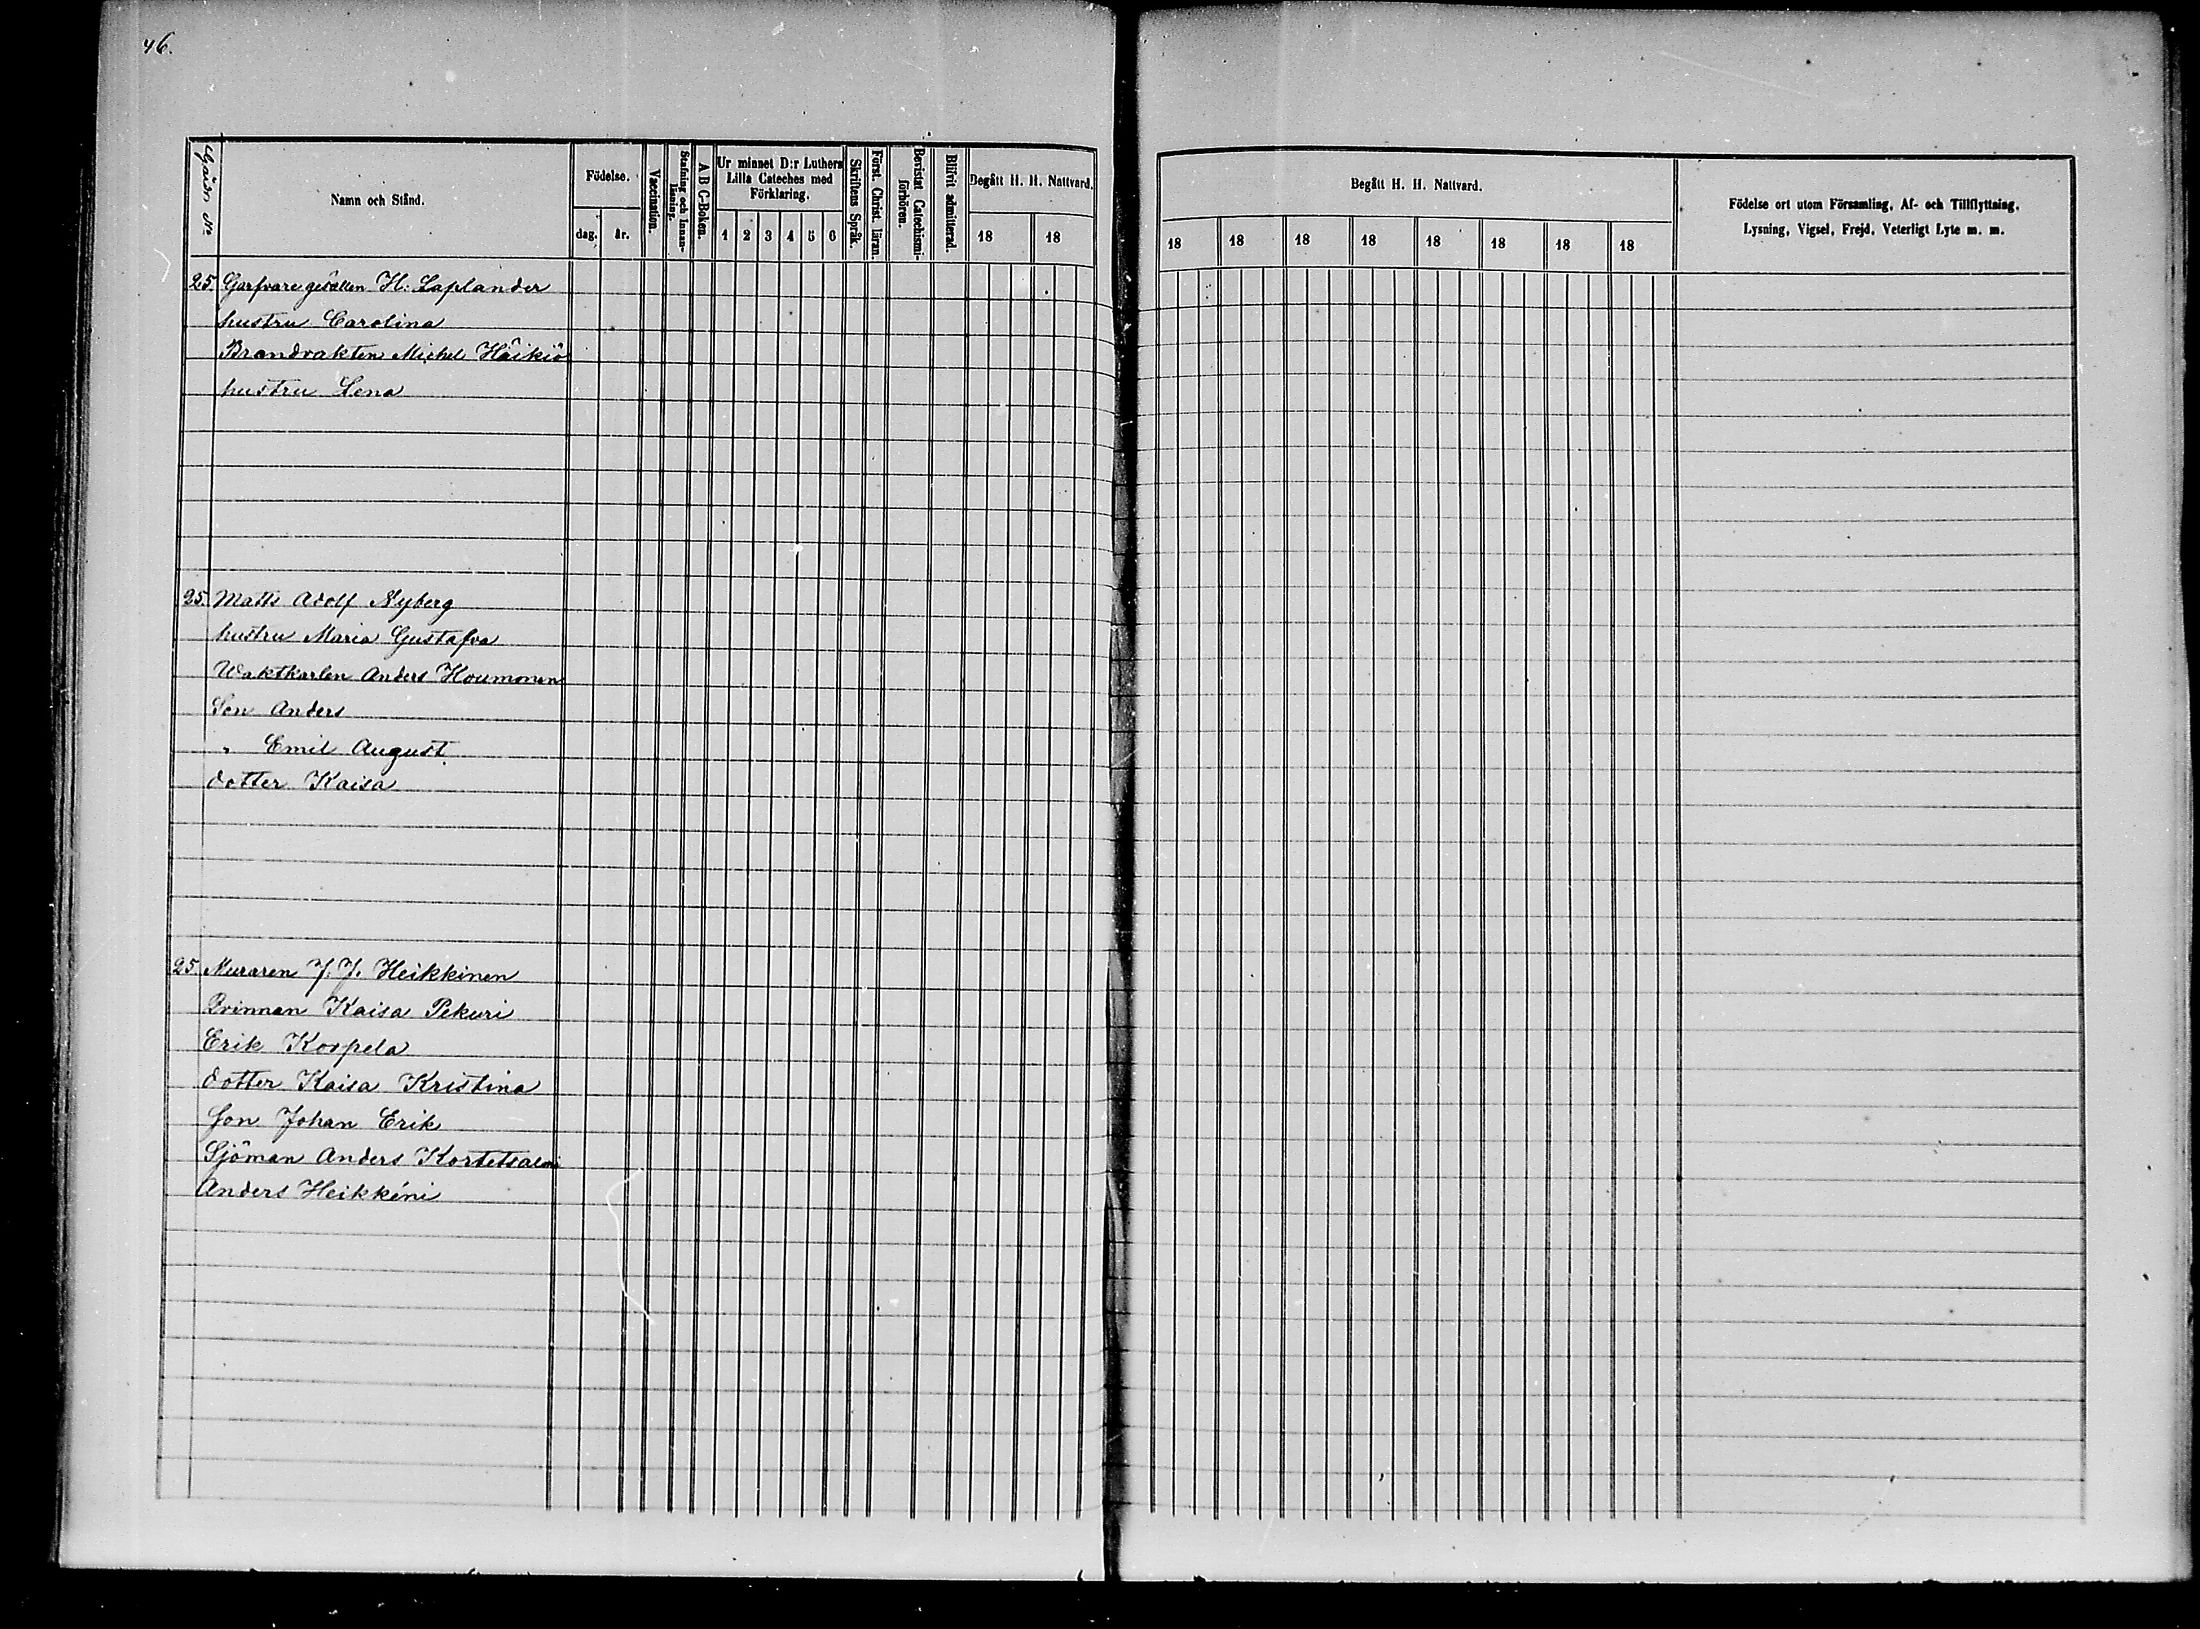 46.
Gårdn №
Namn och Stånd.
Födelse.
dag.
år.
Vaccination.
Stafning och Innan-
läsning.
A B C-Boken.
Ur minnet D:r Luthers
Lilla Cateches med
Förklaring.
1 2 3 4 5 6
Skriftens Språk.
Först. Christ. läran.
Bevistat Catechismi-
förhören.
Blifvit admitterad.
Begått H. H. Nattvard.
18 18
Begått H. H. Nattvard.
18 18 18 18 18 18 18 18
Födelse ort utom Församling, Af- och Tillflyttning,
Lysning, Vigsel, Frejd, Veterligt Lyte m. m.
25. Garfvaregesällen H. Laplander
hustru Carolina
Brandvakten Michel Häikiö
hustru Lena
25. Matts Adolf Nyberg
hustru Maria Gustafva
Waktkarlen Anders Houmonen
Son Anders
" Emil August
dotter Kaisa
25. Muraren J. J. Heikkinen
Qvinnan Kaisa Pekuri
Erik Korpela
dotter Kaisa Kristina
Son Johan Erik
Sjöman Anders Kortetsalmi
Anders Heikkéni